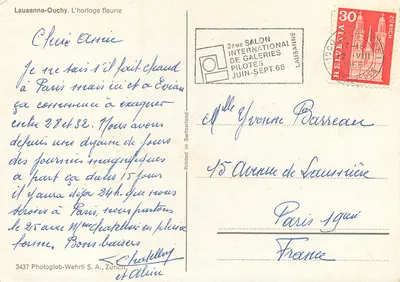 Lausanne-Ouchy. L'horloge fleurie
Chère amie
Je ne sais s'il fait chaud
à Paris mais ici et à Evian
ça commence à exagérer
entre 28 et 32. Nous avons
depuis une dizaine de jours
des journées magnifiques
à part ça dans 15 jours
il y aura déjà 24h. que nous
serons à Paris, nous partons
le 25 avec Mme Chatellon en pleine
forme. Bons baisers
et
3437 Photoglob-Wehrli S. A., Zürich
Printed in Switzerland
2ème SALON
INTERNATIONAL
DE GALERIES
PILOTES
JUIN-SEPT. 66
LAUSANNE
30
HELVETIA
ZÜRICH
Mlle Yvonne Barreau
15 Avenue de
Paris
France